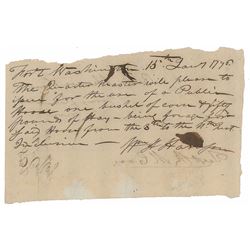 Fort Washington 15th Jany 1796
The Quarter master will please to
issue for the use of a Public
Horse one bushel of corn & fifty
pounds of Hay - being forage for
said Horse from the 3rd to the 11th Inst
Inclusive -
Wm H Harrison